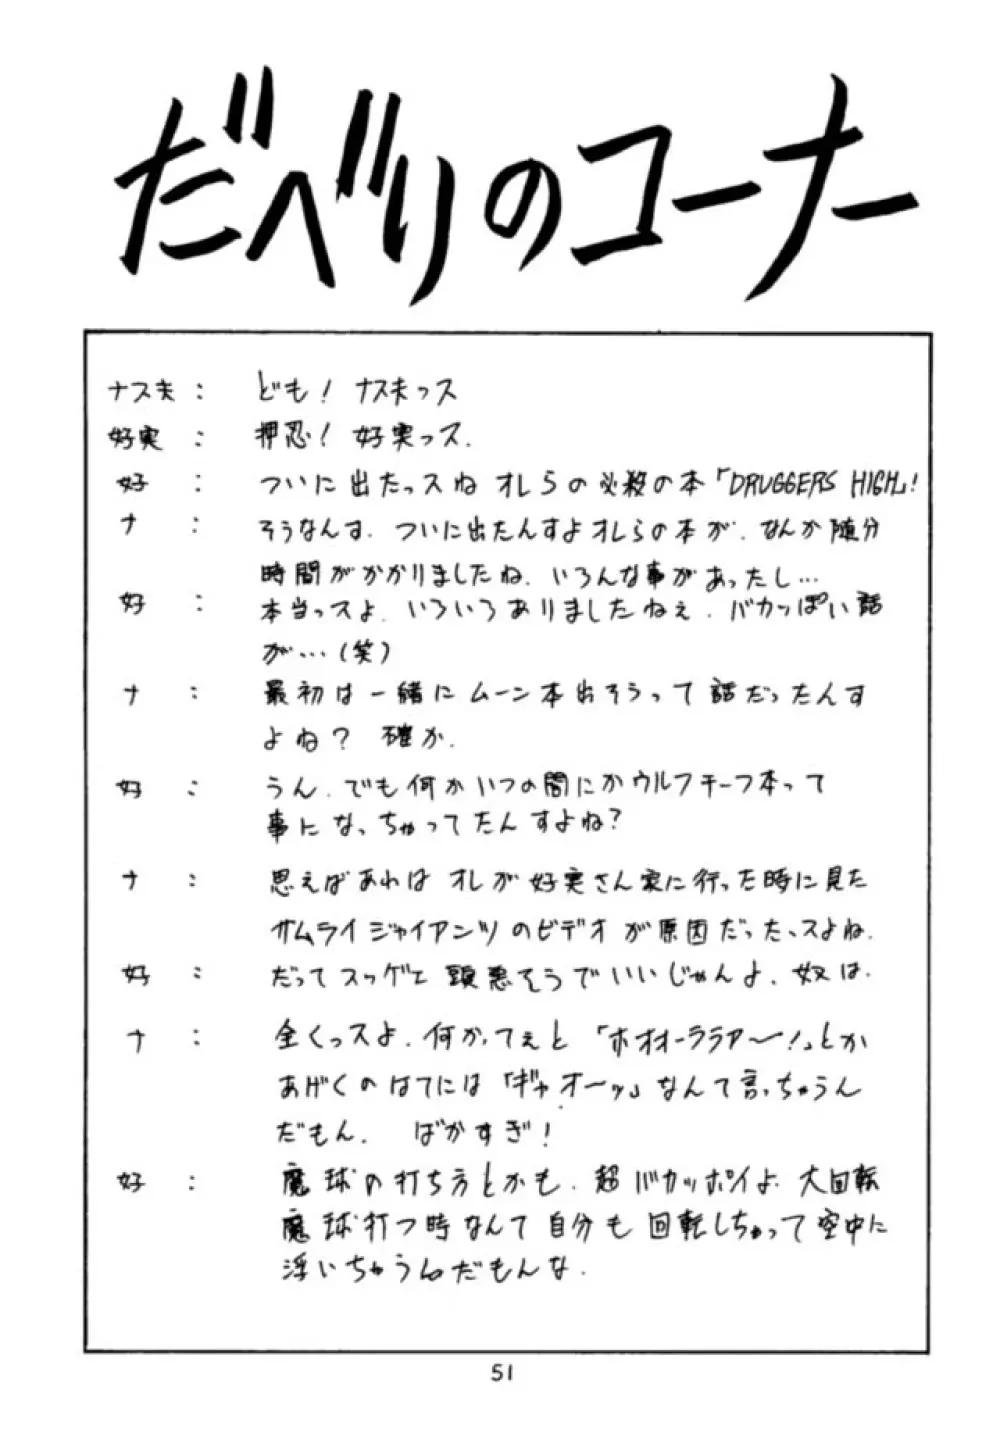 だべりのコーナー
ナス夫： ども！ ナス夫っス
好実： 押忍！ 好実っス.
好： ついに出たっスね オレらの必殺の本「DRUGGERS HIGH」！
ナ： そうなんす. ついに出たんすよオレらの本が. なんか随分
時間がかかりましたね. いろんな事があったし…
好： 本当っスよ. いろいろありましたねぇ. バカっぽい話
が…(笑)
ナ： 最初は一緒にムーン本出そうって話だったんす
よね？ 確か.
好： うん. でも何かいつの間にかウルフチーフ本って
事になっちゃってたんすよね？
ナ： 思えばあれはオレが好実さん家に行った時に見た
サムライジャイアンツのビデオが原因だったっスよね.
好： だってスッゲェ頭悪そうでいいじゃんよ. 奴は.
ナ： 全くっスよ. 何かってぇと「ホオオーララアー〜！」とか
あげくのはてには「ギャオーッ」なんて言っちゃうん
だもん. ばかすぎ！
好： 魔球の打ち方とかも. 超バカッポイよ. 大回転
魔球打つ時なんて自分も回転しちゃって空中に
浮いちゃうんだもんな.
51